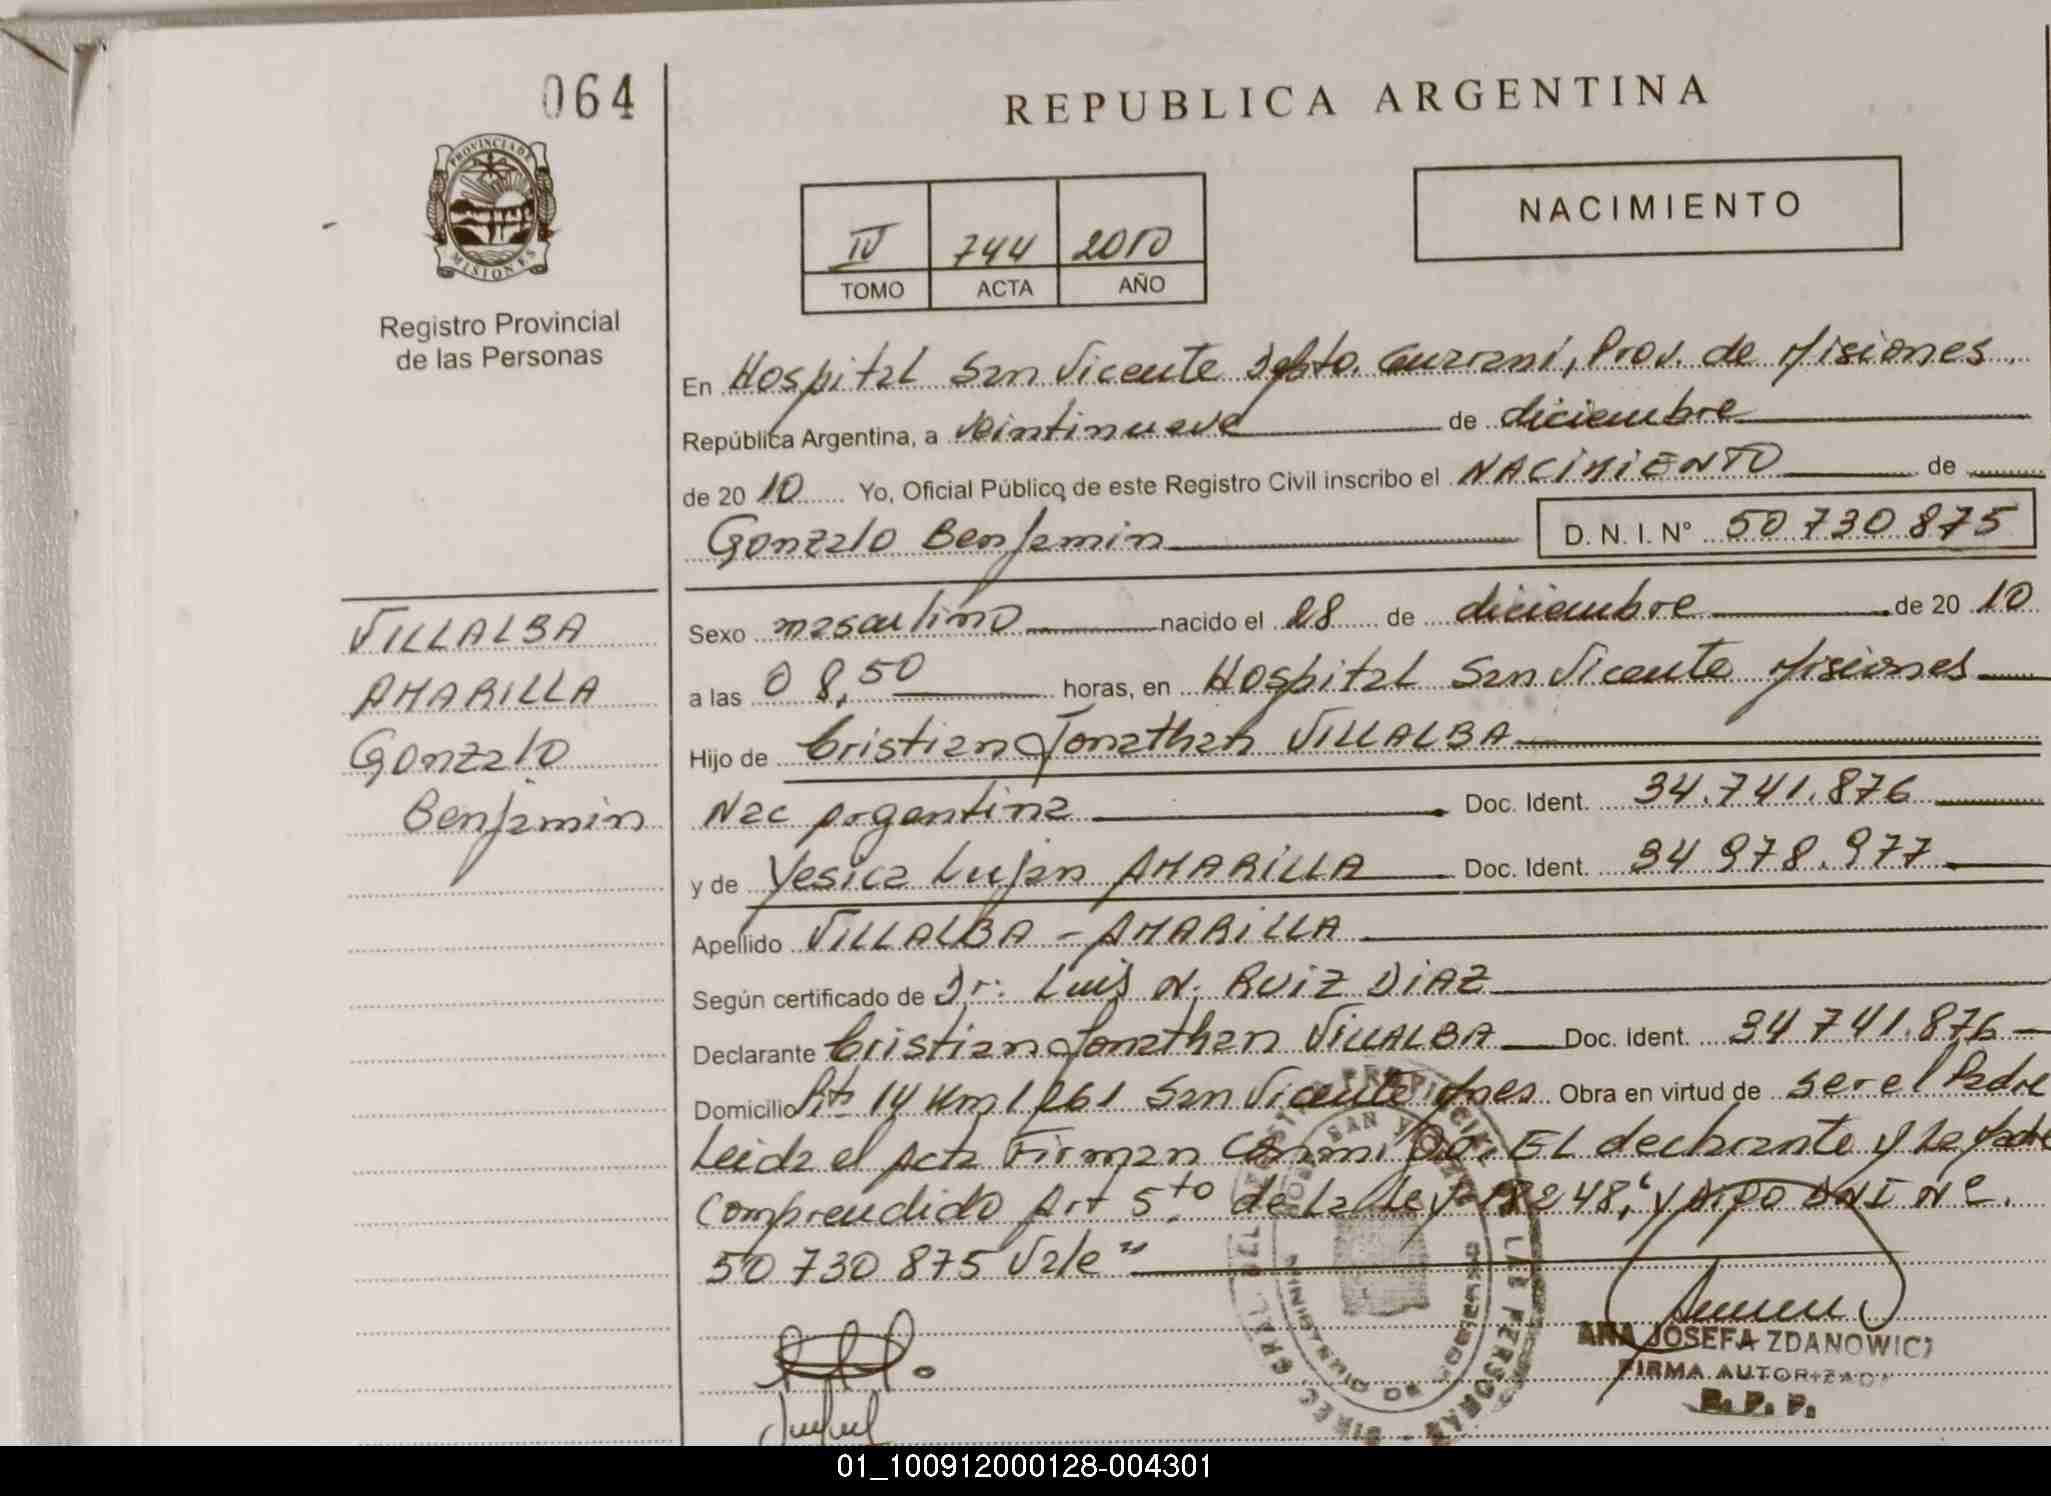 064
REPUBLICA ARGENTINA
PROVINCIA DE
MISIONES
Registro Provincial
de las Personas
IV 744 2010
TOMO ACTA AÑO
NACIMIENTO
En Hospital San Vicente Dpto. Guarani, Prov. de Misiones
República Argentina, a veintinueve de diciembre
de 20 10 Yo, Oficial Público de este Registro Civil inscribo el NACIMIENTO de
Gonzalo Benjamin D. N. I. N° 50 730 875
VILLALBA
AMARILLA
Gonzalo
Benjamin
Sexo masculino nacido el 28 de diciembre de 20 10
a las 08,50 horas, en Hospital San Vicente Misiones
Hijo de Cristian Jonathan VILLALBA
Nac Argentina Doc. Ident. 34.741.876
y de Yesica Lujan AMARILLA Doc. Ident. 34 978.977
Apellido VILLALBA - AMARILLA
Según certificado de Dr. Luis N. RUIZ DIAZ
Declarante Cristian Jonathan VILLALBA Doc. Ident. 34 741.876
Domicilio Rta 14 Km 1261 San Vicente Mnes Obra en virtud de ser el Padre
Leida el Acta Firman Conmigo. EL declarante y La Madre
Comprendido Art 5to de La Ley 18248, "y DNI Nº.
50 730 875 Vale"
ANA JOSEFA ZDANOWICZ
FIRMA AUTORIZADA
R. P. P.
01_100912000128-004301